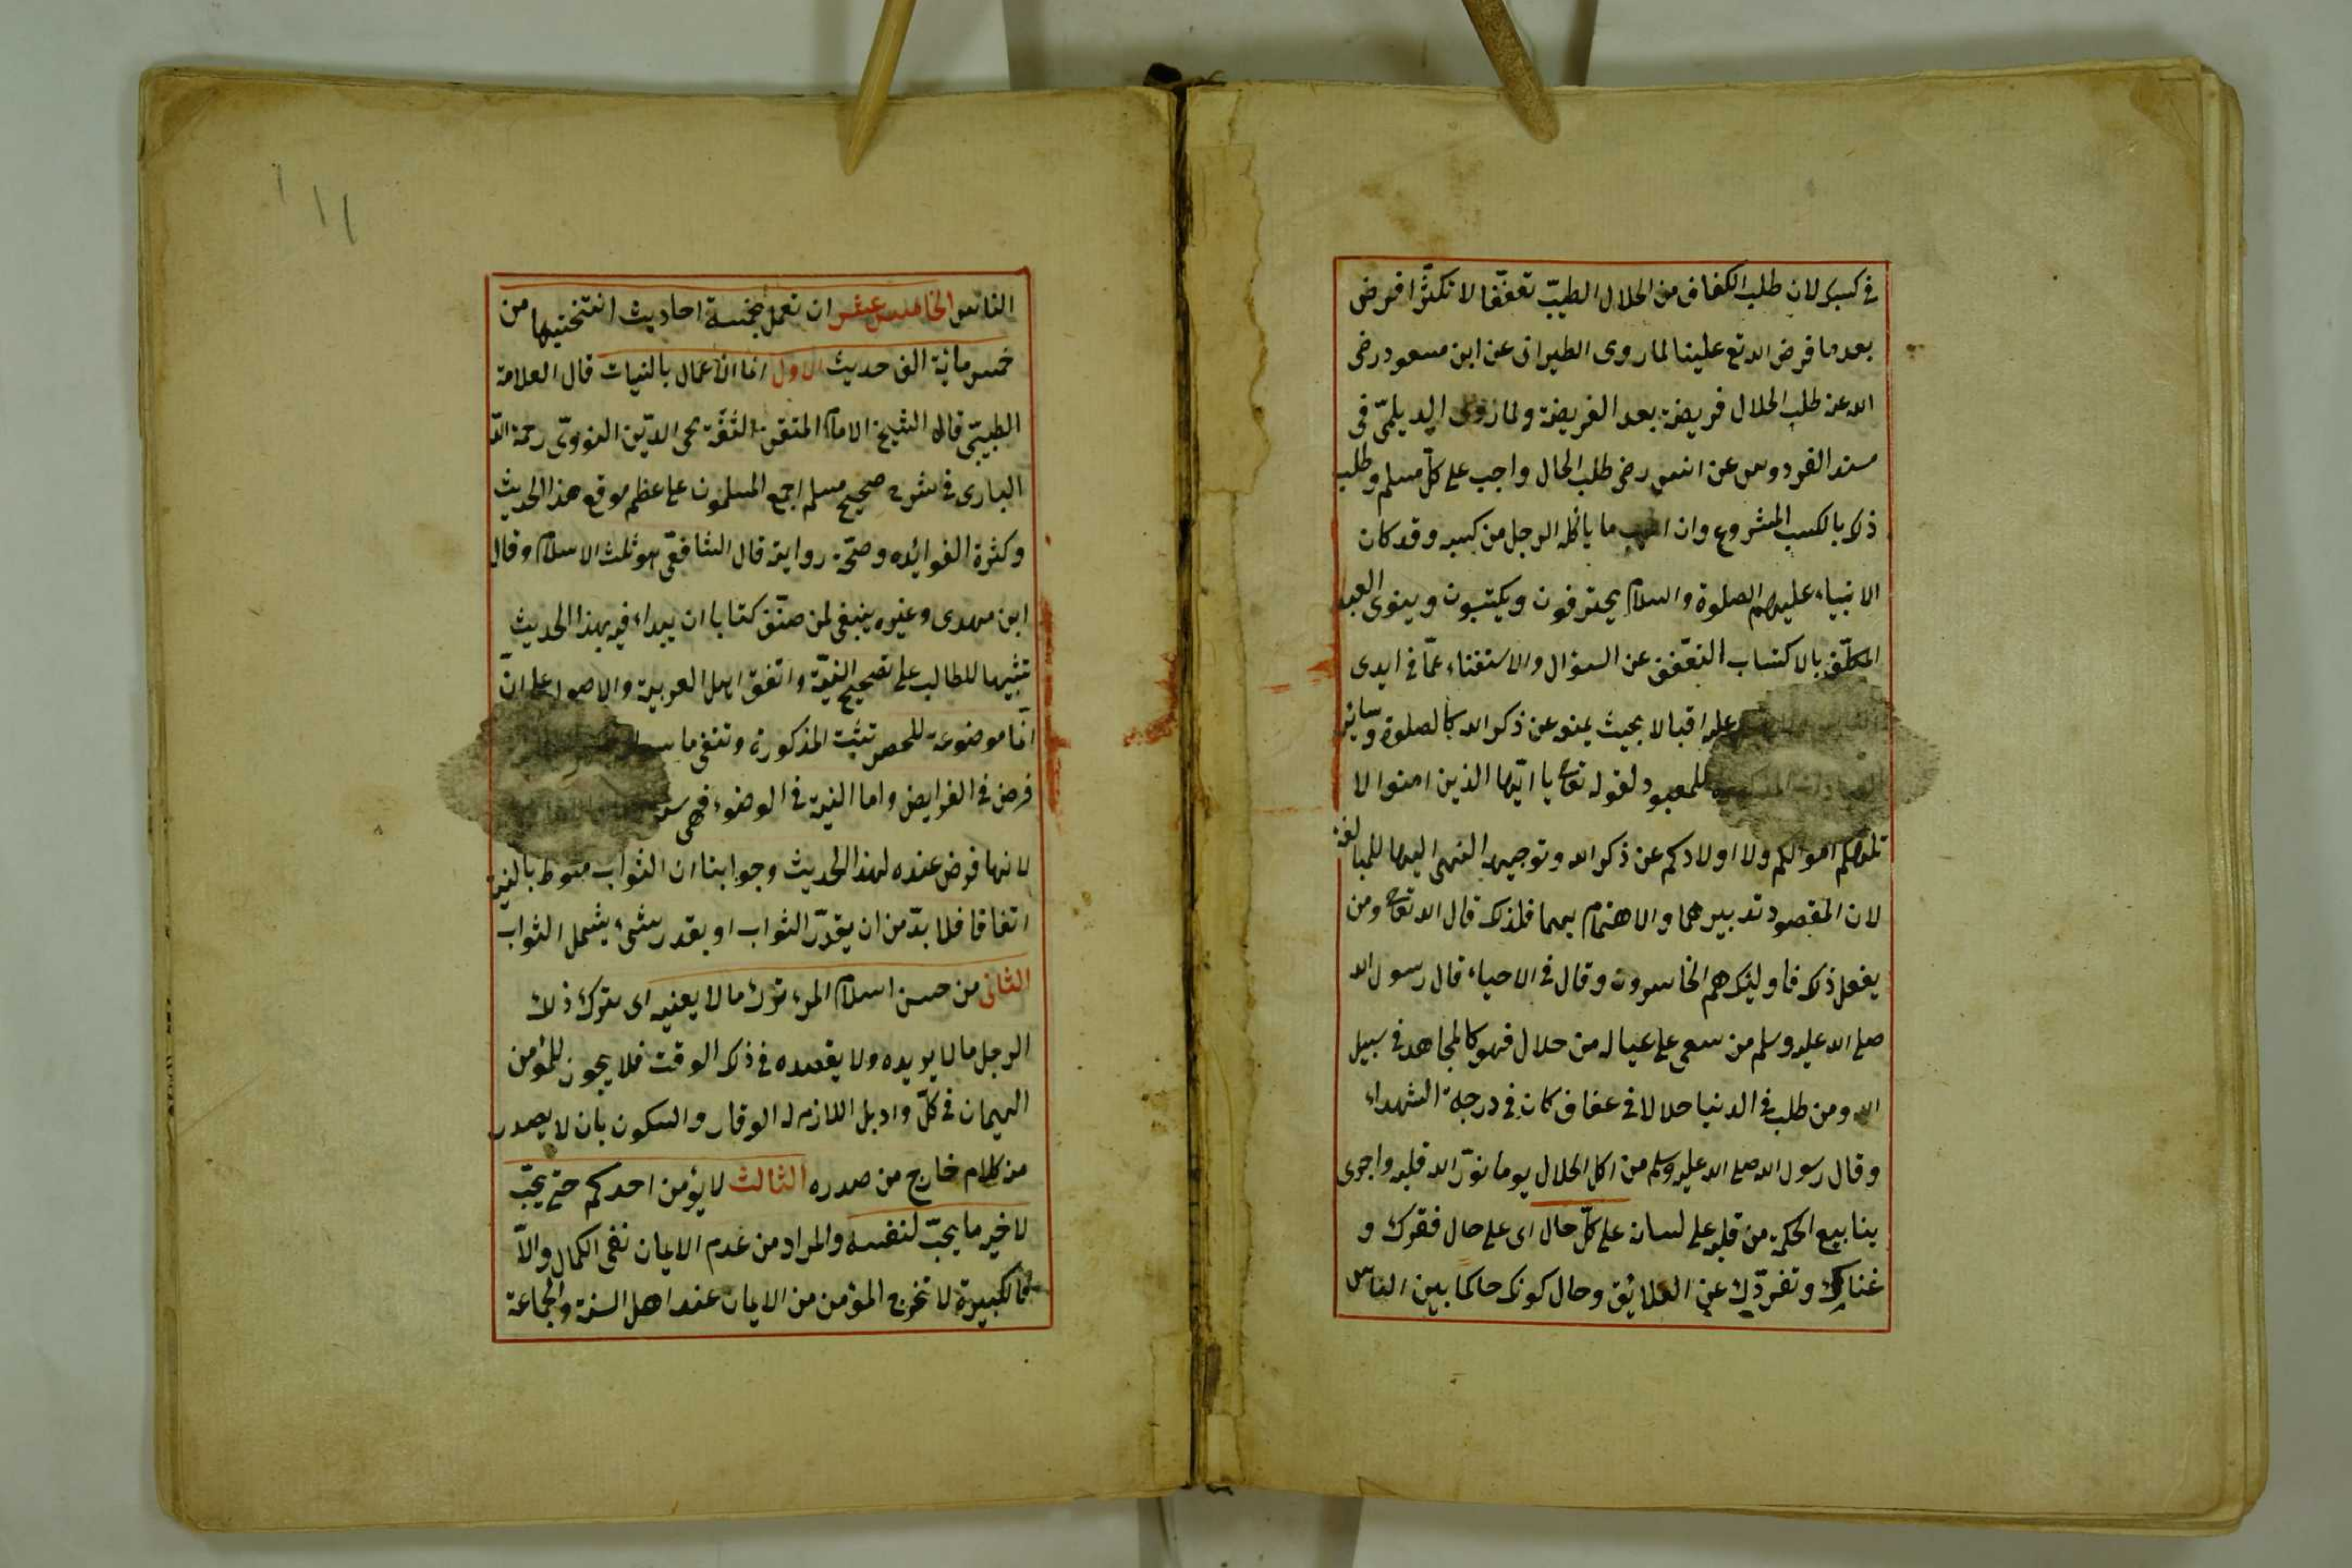 في كسبك لان طلب الكفاف من الحلال الطيّب تعفّفا لا تكثّرا فرض
بعد ما فرض الله تع علينا لما روى الطبرانى عن ابن مسعود رضى
الله عنه طلب الحلال فريضة بعد الفريضة ولما روى الديلمىّ فى
مسند الفردوس عن انس رضى طلب الحال واجب على كلّ مسلم وطلب
ذلك بالكسب المشروع وان ما ياكله الرجل من كسبه وقد كان
الانبياء عليهم الصلوة والسلام يحترفون ويكتسبون وينوى العبد
المكلّف بالاكتساب التعفّف عن السؤال والاستغناء عمّا فى ايدى
عليه اقبالا بحيث يمنع عن ذكر الله كالصلوة وسائر
للمعبود لقوله تعالى يا ايّها الذين امنوا لا
تلهكم اموالكم ولا اولادكم عن ذكر الله وتوجيه النهى اليها للمبالغة
لان المقصود تدبيرهما والاهتمام بهما فلذلك قال الله تعالى ومن
يفعل ذلك فاولئك هم الخاسرون وقال فى الاحياء قال رسول الله
صلى الله عليه وسلم من سعى على عياله من حلال فهو كالمجاهد فى سبيل
الله ومن طلب فى الدنيا حلالا فى عفاف كان فى درجة الشهداء
وقال رسول الله صلى الله عليه وسلم من اكل الحلال يوما نوّر الله قلبه واجرى
ينابيع الحكمة من قلبه على لسانه على كلّ حال اى على حال فقرك و
غناك وتفرّدك عن العلائق وحال كونك حاكما بين الناس
الناس الخامس عشر ان تعمل بخمسة احاديث انتخبتها من
خمس مائة الف حديث الاول انما الاعمال بالنيات قال العلامة
الطيبّى قال الشيخ الامام المتقن الثقة محى الدّين النووىّ رحمة الله
البارى فى شرح صحيح مسلم اجمع المسلمون على عظم موقع هذا الحديث
وكثرة الفوائده وصحّة روايته قال الشافعّى هو ثلث الاسلام وقال
ابن مهدى وغيره ينبغى لمن صنّف كتابا ان يبداء فيه بهذا الحديث
تنبيها للطالب على تصحيح النيّة واتفق اهل العربية والاصول على انّ
انّما موضوعة للحصر تثبت المذكورة وتنفى ما
فرض فى الفرايض واما النية فى الوضوء فهى
لانها فرض عنده لهذا الحديث وجوابنا ان الثواب منوط بالنية
اتفاقا فلا بدّ من ان يقدّر الثواب او يقدر شىء يشمل الثواب
الثانى من حسن اسلام المرء ترك ما لا يعنيه اى يترك ذلك
الرجل ما لا يريده ولا يقصده فى ذلك الوقت فلا يجوز للمؤمن
الهيمان فى كلّ واد بل اللازم له الوقار والسكون بان لا يصدر
من كلام خارج من صدره الثالث لا يؤمن احدكم حتى يحبّ
لاخيه ما يحبّ لنفسه والمراد من عدم الايمان نفى الكمال والاّ
فالكبيرة لا تخرج المؤمن من الايمان عند اهل السنة والجماعة